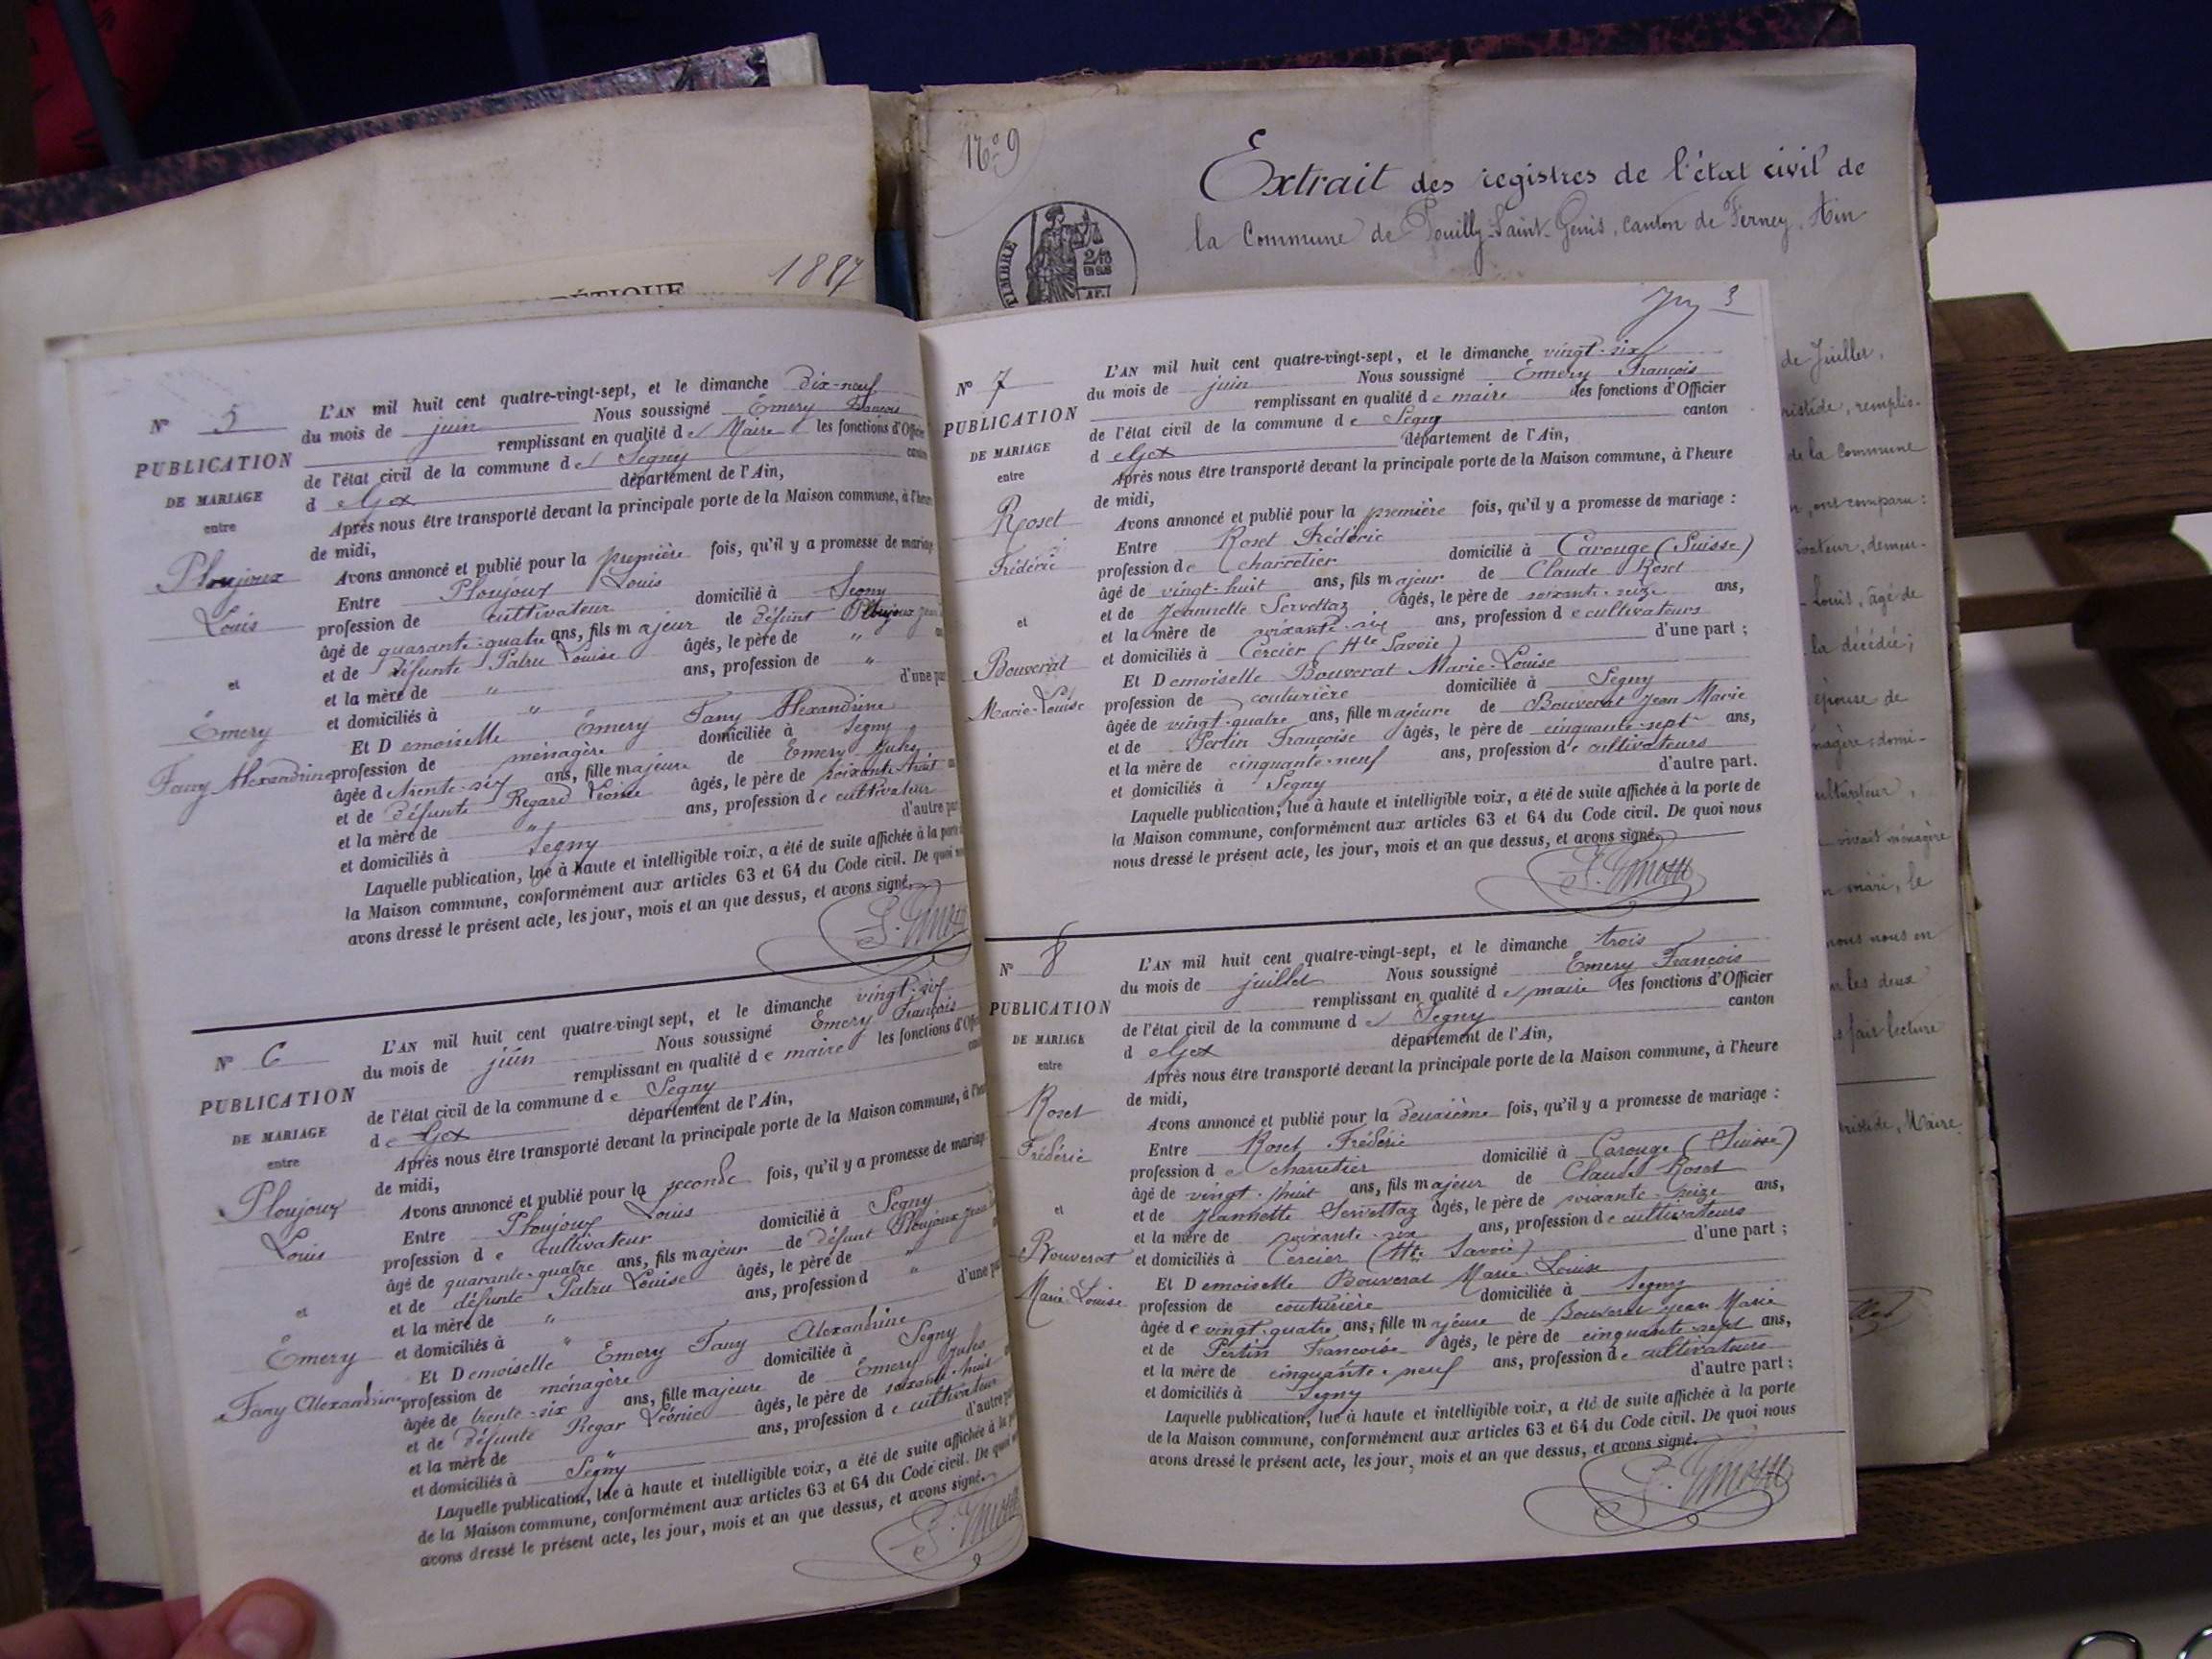 1887
N° 9
Extrait des registres de l'état civil de
la Commune de Pouilly-Saint-Genis, canton de Ferney, Ain
TIMBRE
N° 5
PUBLICATION
DE MARIAGE
entre
Ploujoux
Louis
et
Émery
Fany Alexandrine
L'AN mil huit cent quatre-vingt-sept, et le dimanche dix-neuf
du mois de juin Nous soussigné Émery François
remplissant en qualité de Maire les fonctions d'Officier
de l'état civil de la commune de Segny
de Gex département de l'Ain,
Après nous être transporté devant la principale porte de la Maison commune, à l'heure
de midi,
Avons annoncé et publié pour la première fois, qu'il y a promesse de mariage
Entre Ploujoux Louis
profession de cultivateur domicilié à Segny
âgé de quarante-quatre ans, fils majeur de défunt Ploujoux Jean
et de défunte Patru Louise âgés, le père de "
et la mère de " ans, profession de "
et domiciliés à " d'une part
Et Demoiselle Émery Fany Alexandrine
profession de ménagère domiciliée à Segny
âgée de trente-six ans, fille majeure de Émery Jules
et de défunte Regard Léonie âgés, le père de soixante-huit
et la mère de " ans, profession de cultivateur
et domiciliés à Segny d'autre part
Laquelle publication, lue à haute et intelligible voix, a été de suite affichée à la porte
la Maison commune, conformément aux articles 63 et 64 du Code civil. De quoi
avons dressé le présent acte, les jour, mois et an que dessus, et avons signé.
N° 6
PUBLICATION
DE MARIAGE
entre
Ploujoux
Louis
et
Émery
Fany Alexandrine
L'AN mil huit cent quatre-vingt sept, et le dimanche vingt-six
du mois de juin Nous soussigné Émery François
remplissant en qualité de maire les fonctions d'Officier
de l'état civil de la commune de Segny
de Gex département de l'Ain,
Après nous être transporté devant la principale porte de la Maison commune, à l'heure
de midi,
Avons annoncé et publié pour la seconde fois, qu'il y a promesse de mariage
Entre Ploujoux Louis
profession de cultivateur domicilié à Segny
âgé de quarante-quatre ans, fils majeur de défunt Ploujoux Jean
et de défunte Patru Louise âgés, le père de "
et la mère de " ans, profession d "
et domiciliés à " d'une part
Et Demoiselle Émery Fany Alexandrine
profession de ménagère domiciliée à Segny
âgée de trente-six ans, fille majeure de Émery Jules
et de défunte Regar Léonie âgés, le père de soixante-huit
et la mère de " ans, profession de cultivateur
et domiciliés à Segny d'autre part
Laquelle publication, lue à haute et intelligible voix, a été de suite affichée à la porte
de la Maison commune, conformément aux articles 63 et 64 du Code civil. De quoi
avons dressé le présent acte, les jour, mois et an que dessus, et avons signé.
3
N° 7
PUBLICATION
DE MARIAGE
entre
Roset
Frédéric
et
Bouverat
Marie-Louise
L'AN mil huit cent quatre-vingt-sept, et le dimanche vingt-six
du mois de juin Nous soussigné Émery François
remplissant en qualité de maire les fonctions d'Officier
de l'état civil de la commune de Segny canton
de Gex département de l'Ain,
Après nous être transporté devant la principale porte de la Maison commune, à l'heure
de midi,
Avons annoncé et publié pour la première fois, qu'il y a promesse de mariage :
Entre Roset Frédéric
profession de charretier domicilié à Carouge (Suisse)
âgé de vingt-huit ans, fils majeur de Claude Roset
et de Jeannette Servettaz âgés, le père de soixante-seize ans,
et la mère de soixante-six ans, profession de cultivateurs
et domiciliés à Cercier (Hte Savoie) d'une part ;
Et Demoiselle Bouverat Marie-Louise
profession de couturière domiciliée à Segny
âgée de vingt-quatre ans, fille majeure de Bouverat Jean Marie
et de Pertin Françoise âgés, le père de cinquante-sept ans,
et la mère de cinquante-neuf ans, profession de cultivateurs
et domiciliés à Segny d'autre part.
Laquelle publication, lue à haute et intelligible voix, a été de suite affichée à la porte de
la Maison commune, conformément aux articles 63 et 64 du Code civil. De quoi nous
nous dressé le présent acte, les jour, mois et an que dessus, et avons signé.
N° 8
PUBLICATION
DE MARIAGE
entre
Roset
Frédéric
et
Bouverat
Marie Louise
L'AN mil huit cent quatre-vingt-sept, et le dimanche trois
du mois de juillet Nous soussigné Émery François
remplissant en qualité de maire les fonctions d'Officier
de l'état civil de la commune de Segny canton
de Gex département de l'Ain,
Après nous être transporté devant la principale porte de la Maison commune, à l'heure
de midi,
Avons annoncé et publié pour la deuxième fois, qu'il y a promesse de mariage :
Entre Roset Frédéric
profession de charretier domicilié à Carouge (Suisse)
âgé de vingt-huit ans, fils majeur de Claude Roset
et de Jeannette Servettaz âgés, le père de soixante-seize ans,
et la mère de soixante-six ans, profession de cultivateurs
et domiciliés à Cercier (Hte Savoie) d'une part ;
Et Demoiselle Bouverat Marie-Louise
profession de couturière domiciliée à Segny
âgée de vingt-quatre ans, fille majeure de Bouverat Jean Marie
et de Pertin Françoise âgés, le père de cinquante-sept ans,
et la mère de cinquante-neuf ans, profession de cultivateurs
et domiciliés à Segny d'autre part ;
Laquelle publication, lue à haute et intelligible voix, a été de suite affichée à la porte
de la Maison commune, conformément aux articles 63 et 64 du Code civil. De quoi nous
avons dressé le présent acte, les jour, mois et an que dessus, et avons signé.
de Juillet,
de la Commune
ont comparu :
Louis, âgé de
la décédée ;
épouse de
mari, le
nous nous en
les deux
fait lecture
Maire